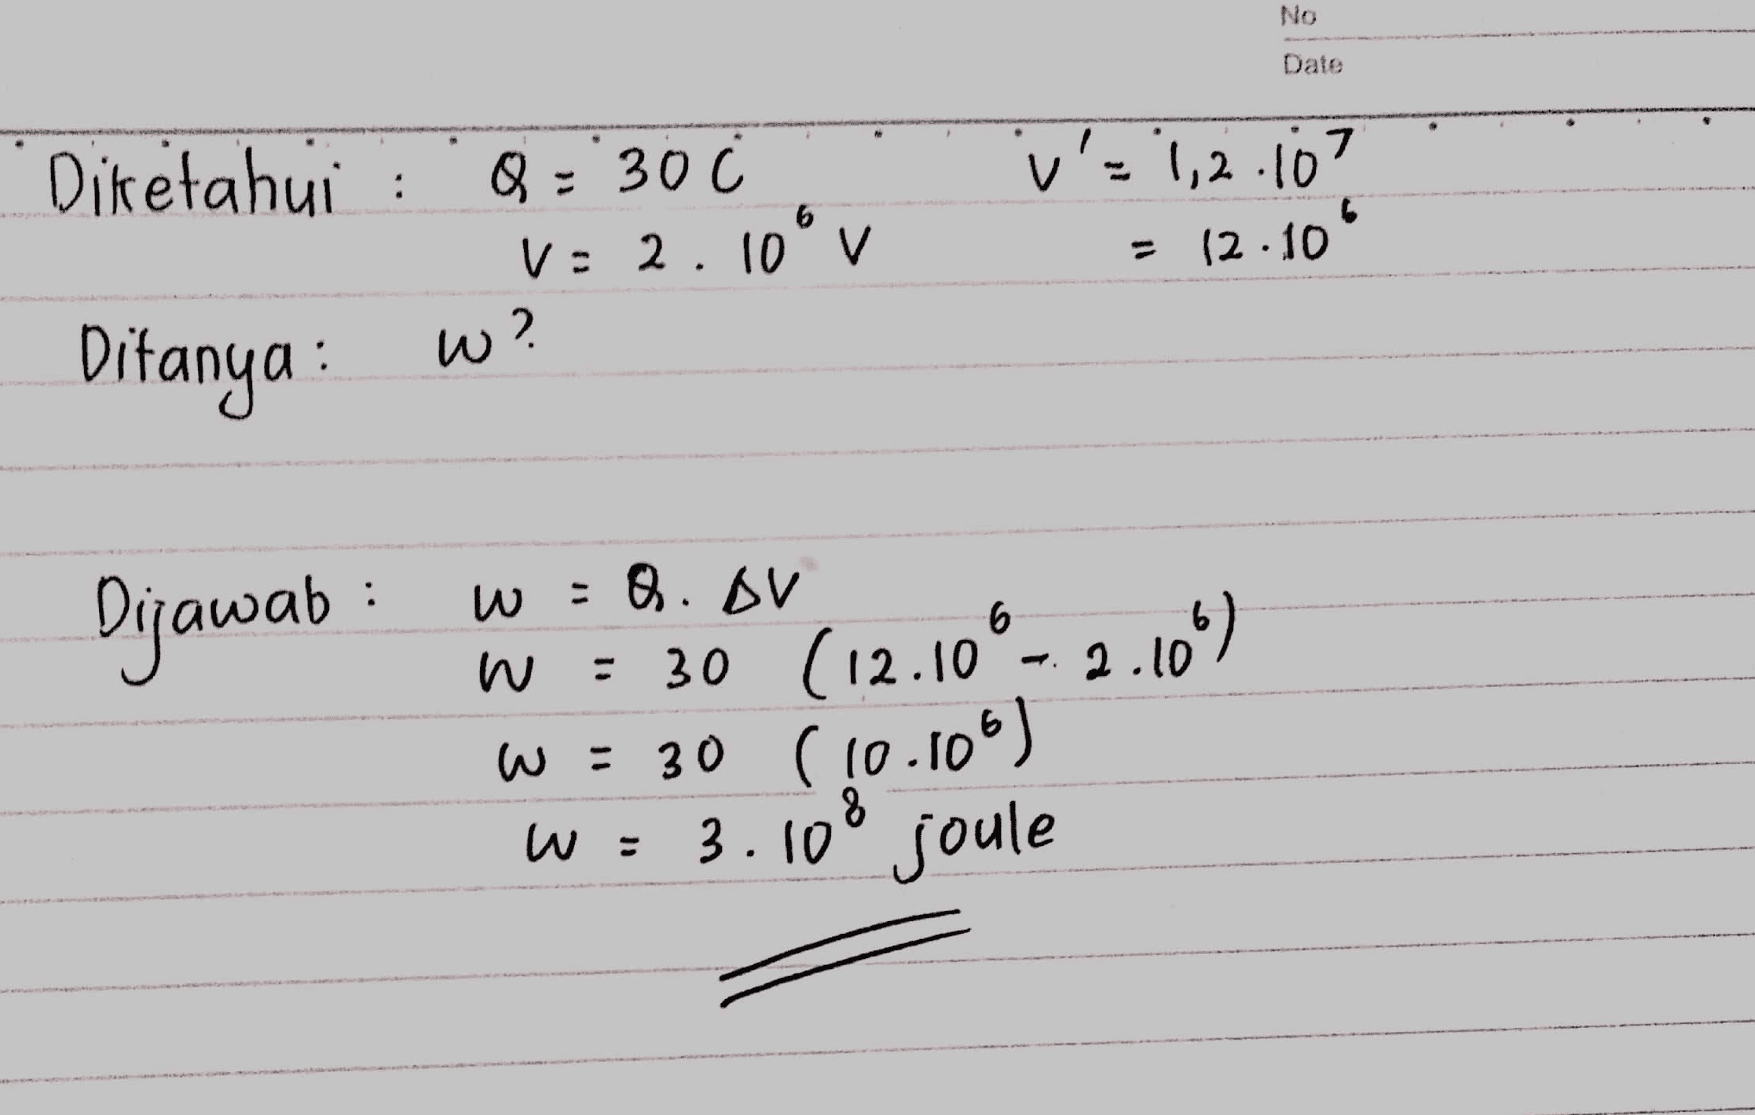 No
Date
Diketahui : Q = 30 C V' = 1,2 . 10⁷
V = 2 . 10⁶ V = 12 . 10⁶
Ditanya : W ?
Dijawab : W = Q . ΔV
W = 30 (12 . 10⁶ - 2 . 10⁶)
W = 30 (10 . 10⁶)
W = 3 . 10⁸ joule